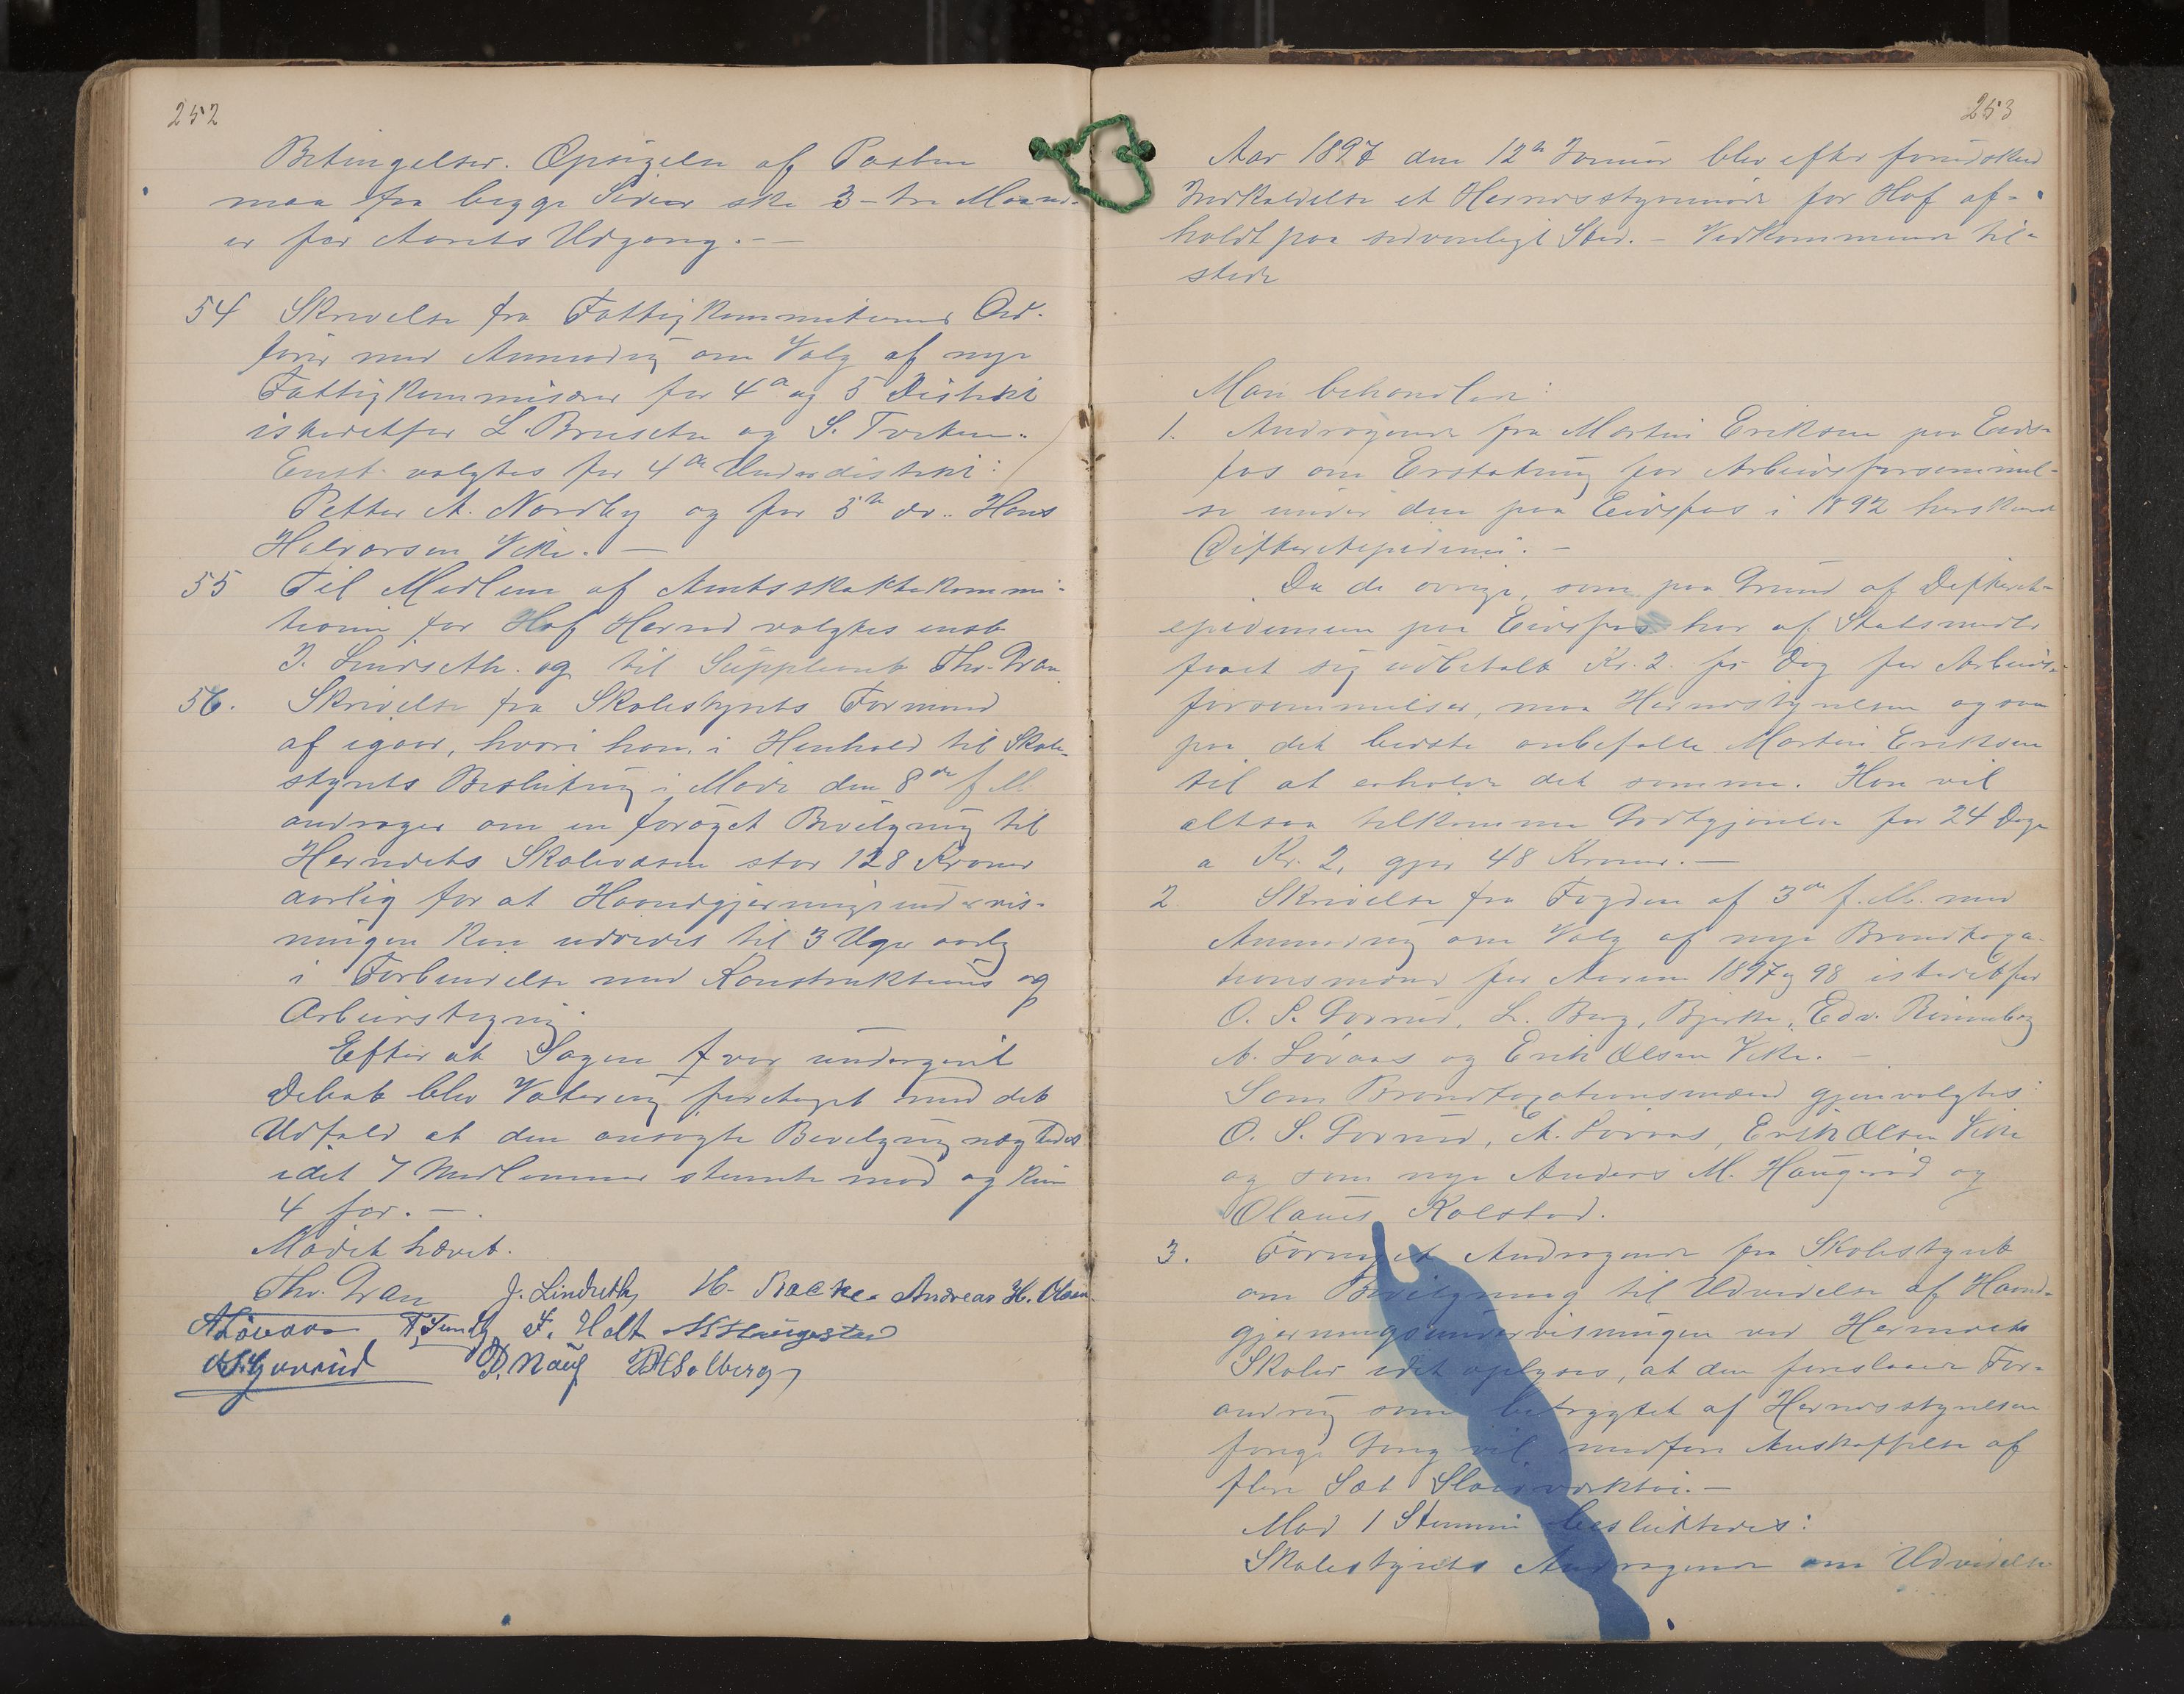 252
Betingelser. Opsigelse af Posten
maa fra begge Sider ske 3-tre Maaned-
er før Aarets Udgang. -
54 Skrivelse fra Fattigkommitionens Ord-
fører med Anmodng om Valg af nye
Fattigkommisærer for 4de og 5 Distrikt
istedetfor L. Bruseth og S. Tveten..
Enst. valgtes for 4de Underdistrikt:
Petter A. Nordby og for 5te do.. Hans
Halvorsen Vike. -
55 Til Medlem af Amtsskattekommi-
tionen for Hof Herred valgtes enst.
J. Lindseth. og til Supplement Thv. Gran.
56. Skrivelse fra Skolestyrets Formand
af igaar, hvori han i Henhold til Skole-
styrets Beslutning i Møde den 8de f. M.
andrager om en forøget Bevilgning til
Herredets Skolevæsen stor 128 Kroner
aarlig for at Haandgjerningsundervis-
ningen kan udvides til 3 Uger aarlg
i Forbindelse med Konstruktions og
Arbeidstegning.
Efter at Sagen var undergivet
Debat blev Votering foretaget med det
Udfald at den ansøgte Bevilgning nægtedes
idet 7 Medlemmer stemte mod og kun
4 for. -
Mødet hævet.
Thv. Gran J. Lindseth H. Backe Andreas H. Olsen
A Løvaas F. Sundby F. Holt
O.S. Govrud D. Nauf H Solberg
253
Aar 1897 den 12te Januar blev efter forudskeed
Indkaldelse et Herredsstyremøde for Hof af-
holdt paa sedvanligt Sted. - Vedkommende til-
stede
Man behandlede:
1. Andragende fra Martin Eriksen paa Eids-
fos om Erstatning for Arbeidsforsømmel-
se under den paa Eidsfos i 1892 herskende
Difteritepidemi. -
Da de øvrige, som paa Grund af Difterit-
epidemien paa Eidsfos har af Statsmidler
faaet sig udbetalt Kr. 2 pr Dag for Arbeids-
forsømmelser, maa Herredsstyrelsen ogsaa
paa det bedste anbefalle Martin Eriksen
til at erholde det samme. Han vil
altsaa tilkomme Godtgjørelse for 24 Dage
a Kr. 2, gjør 48 Kroner. -
2 Skrivelse fra Fogden af 3de f. M. med
Anmodng om Valg af nye Brandtaxa-
tionsmænd for Aarene 1897 og 98 istedetfor
O. S. Govrud, L. Berg, Bjerke, Edv. Rønneberg
A. Løvaas og Erik Olsen Vike. -
Som Brandtaxationsmænd gjenvalgtes
O. S. Govrud, A. Løvaas, Erik Olsen Vike
og som nye Anders M. Haugerud og
Olaus Kolstad.
3. Fornyet Andragende fra Skolestyret
om Bevilgning til Udvidelse af Haand-
gjerningsundervisningen ved Herredets
Skoler idet oplyses, at den foreslaaede For-
andring som betrygtet af Herredsstyrelsen
forrige Gang vil medføre Anskaffelse af
flere Sæt Sløidværktøi. -
Mod 1 Stemme besluttedes:
Skolestyrets Andragende om Udvidelse